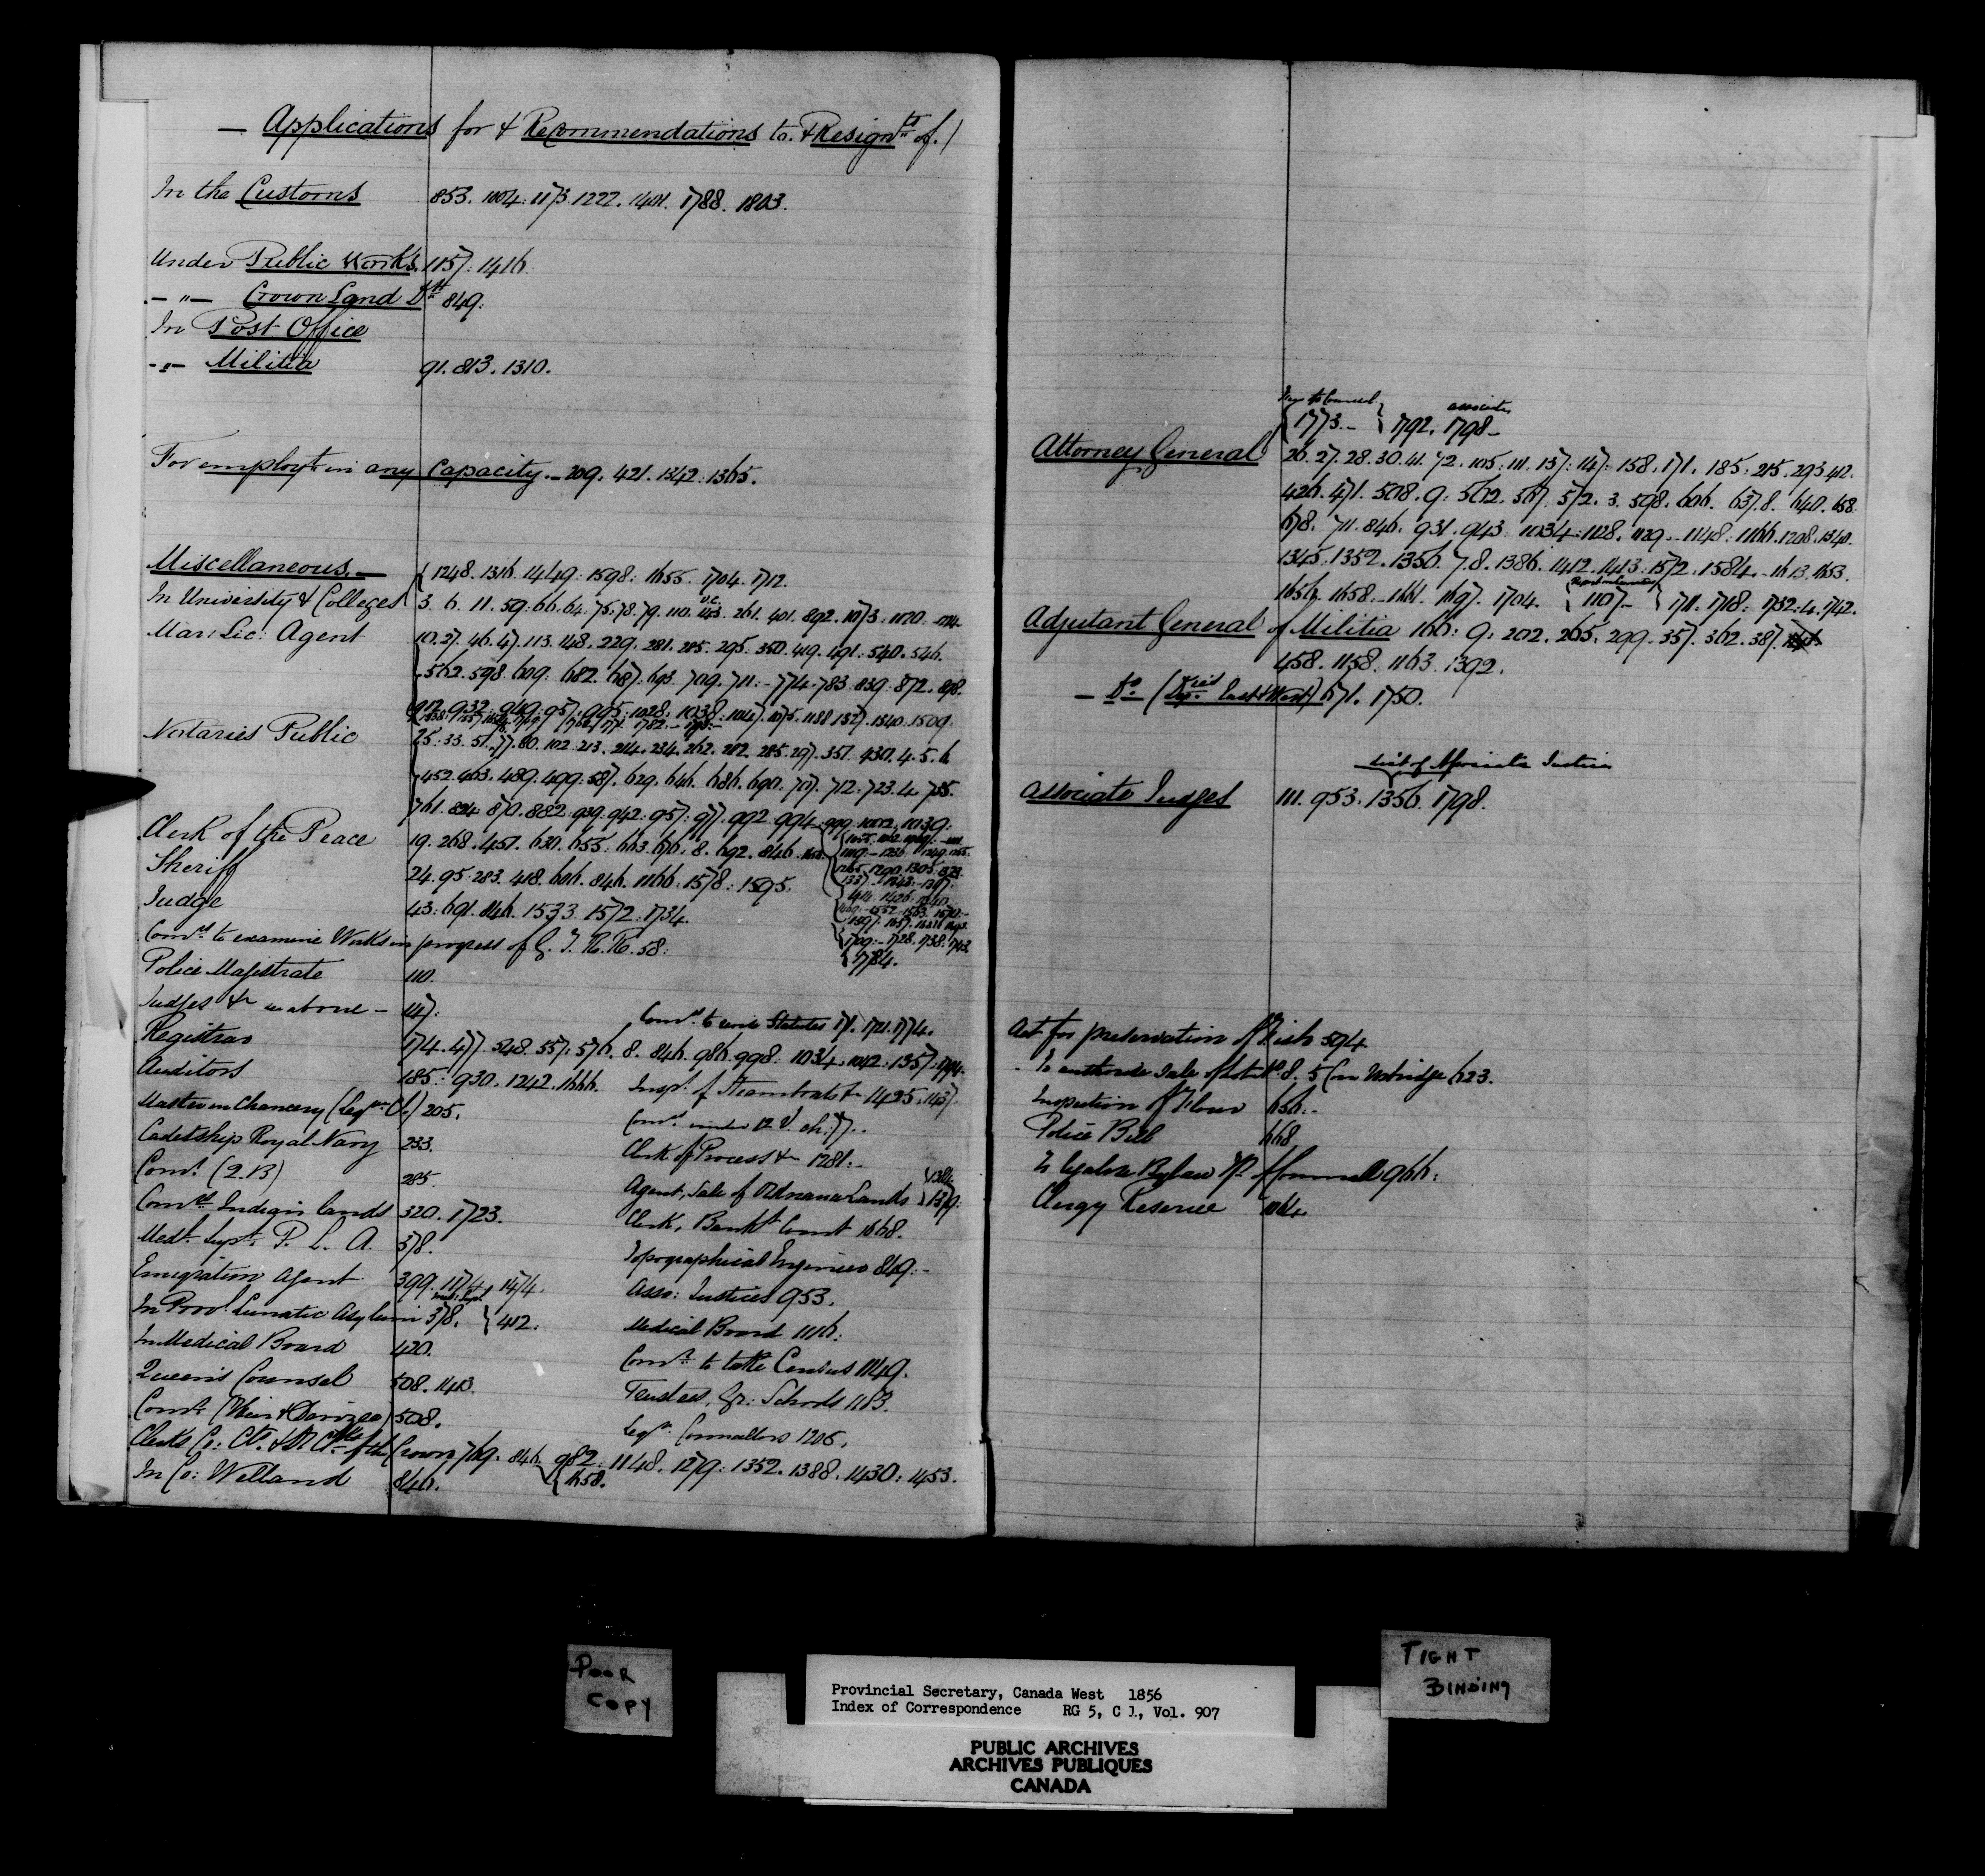 — Applications for & Recommendations to. & Resignts of. /
In the Customs 853. 1004: 1173. 1222. 1401. 1788. 1803.
Under Public Works. 1157: 1416.
— " — Crown Land Dt 849:
In Post Office
- " - Militia 91. 813. 1310.
For employt in any Capacity. — 209. 421. 1342: 1365.
Miscellaneous. — 1248. 1316. 1449: 1598: 1655. 1704. 1712.
In University & Colleges 3. 6. 11. 59: 66. 64. 75. 78. 79. 110. 261. 401. 892. 1073:
Mar: Lic: Agent 10. 27. 46. 47. 113. 148. 229. 281. 285. 295. 350. 419. 491: 540. 546.
562. 598. 609: 682. 687: 693. 709. 711: 774. 783. 839. 872. 898.
912. 932: 949: 957. 995: 1028: 1038: 1047. 1075. 1188. 1327. 1340. 1509.
Notaries Public 25: 33. 51. 77. 80. 102: 213. 214. 234. 262. 282. 285. 297. 351. 430. 4. 5. 6
452. 463. 489. 499: 587. 629. 646. 686. 690. 707. 712: 723. 4. 735.
761. 824. 870. 882: 939. 942: 957: 977. 992. 994. 999. 1002. 1039:
Clerk of the Peace 19. 268. 451. 630. 655: 663. 676. 8. 692. 846.
Sheriff 24. 95: 283. 418. 606. 846. 1166: 1578: 1595.
Judge 43: 691. 846. 1533. 1572: 1734.
1784.
Comrs to examine Works in progress of G. T. R. R. 58:
Police Magistrate 110.
Judges &c as above — 117:
Comrs to revise Statutes 171. 1721. 1774.
Registrar 174. 477. 548. 557. 576. 8. 846. 986. 998: 1034. 1042: 1357.
Auditors 185: 930. 1242. 1666.
Inspr of Steamboats &c 1425. 1437.
Master in Chancery (Legve Cl.) 205.
Comrs under 12 V. ch: 77.
Cadetship Royal Navy 233.
Clerk of Process &c 1281: -
Comr (Q. B) 285.
Agent, Sale of Ordnance Lands
Comrs Indian lands 320. 1723.
Clerk, Bankt Court 1668.
Medl Supt P. L. A. 378.
Topographical Engineer 849: -
Emigration Agent 399. 1174. 1474.
Asso: Justices 953.
In Provl Lunatic Asylum 378. } 412.
Medical Board 1116:
In Medical Board 420.
Comrs to take Census 1149.
Queen's Counsel 508. 1413.
Trustees, Gr: Schools 1183.
Comrs (Heir & Devisee) 508.
Legve Councillors 1205.
Clerks Co: Ct. & of the Crown 769. 846. 982: 1148. 1279: 1352. 1388. 1430: 1453.
1658.
In Co: Welland 846.
1773. — } 1792. 1798 —
Attorney General 26. 27. 28. 30. 41. 72. 105: 111. 137: 147: 158. 171. 185: 215. 293. 412.
426. 471. 508. 9: 562. 567. 572. 3. 598. 606. 637. 8. 640. 658.
678. 711. 846. 931. 943. 1034: 1128. 1129 — 1148: 1166. 1208. 1340.
1345. 1352. 1356. 7. 8. 1386. 1412. 1413: 1572. 1584. 1613. 1653.
1656. 1658. 1661. 1697. 1704. { 1107 — } 1711. 1718: 1732: 4. 1742.
Adjutant General of Militia 166: 9: 202. 265. 299. 357. 362. 387.
458. 1158. 1163. 1392.
— Do (Depy East & West) 671. 1750.
List of Associate Justices
Associate Judges 111. 953. 1356. 1798.
Act for preservation of Fish 594
- To authorize sale of Lot No 8. 5 Con Uxbridge 623.
Inspection of Flour 656: -
Police Bill 668
To legalize Bylaw No of Cornwall 966:
Clergy Reserve 1064
POOR COPY
TIGHT BINDING
Provincial Secretary, Canada West 1856
Index of Correspondence RG 5, C 1, Vol. 907
PUBLIC ARCHIVES
ARCHIVES PUBLIQUES
CANADA